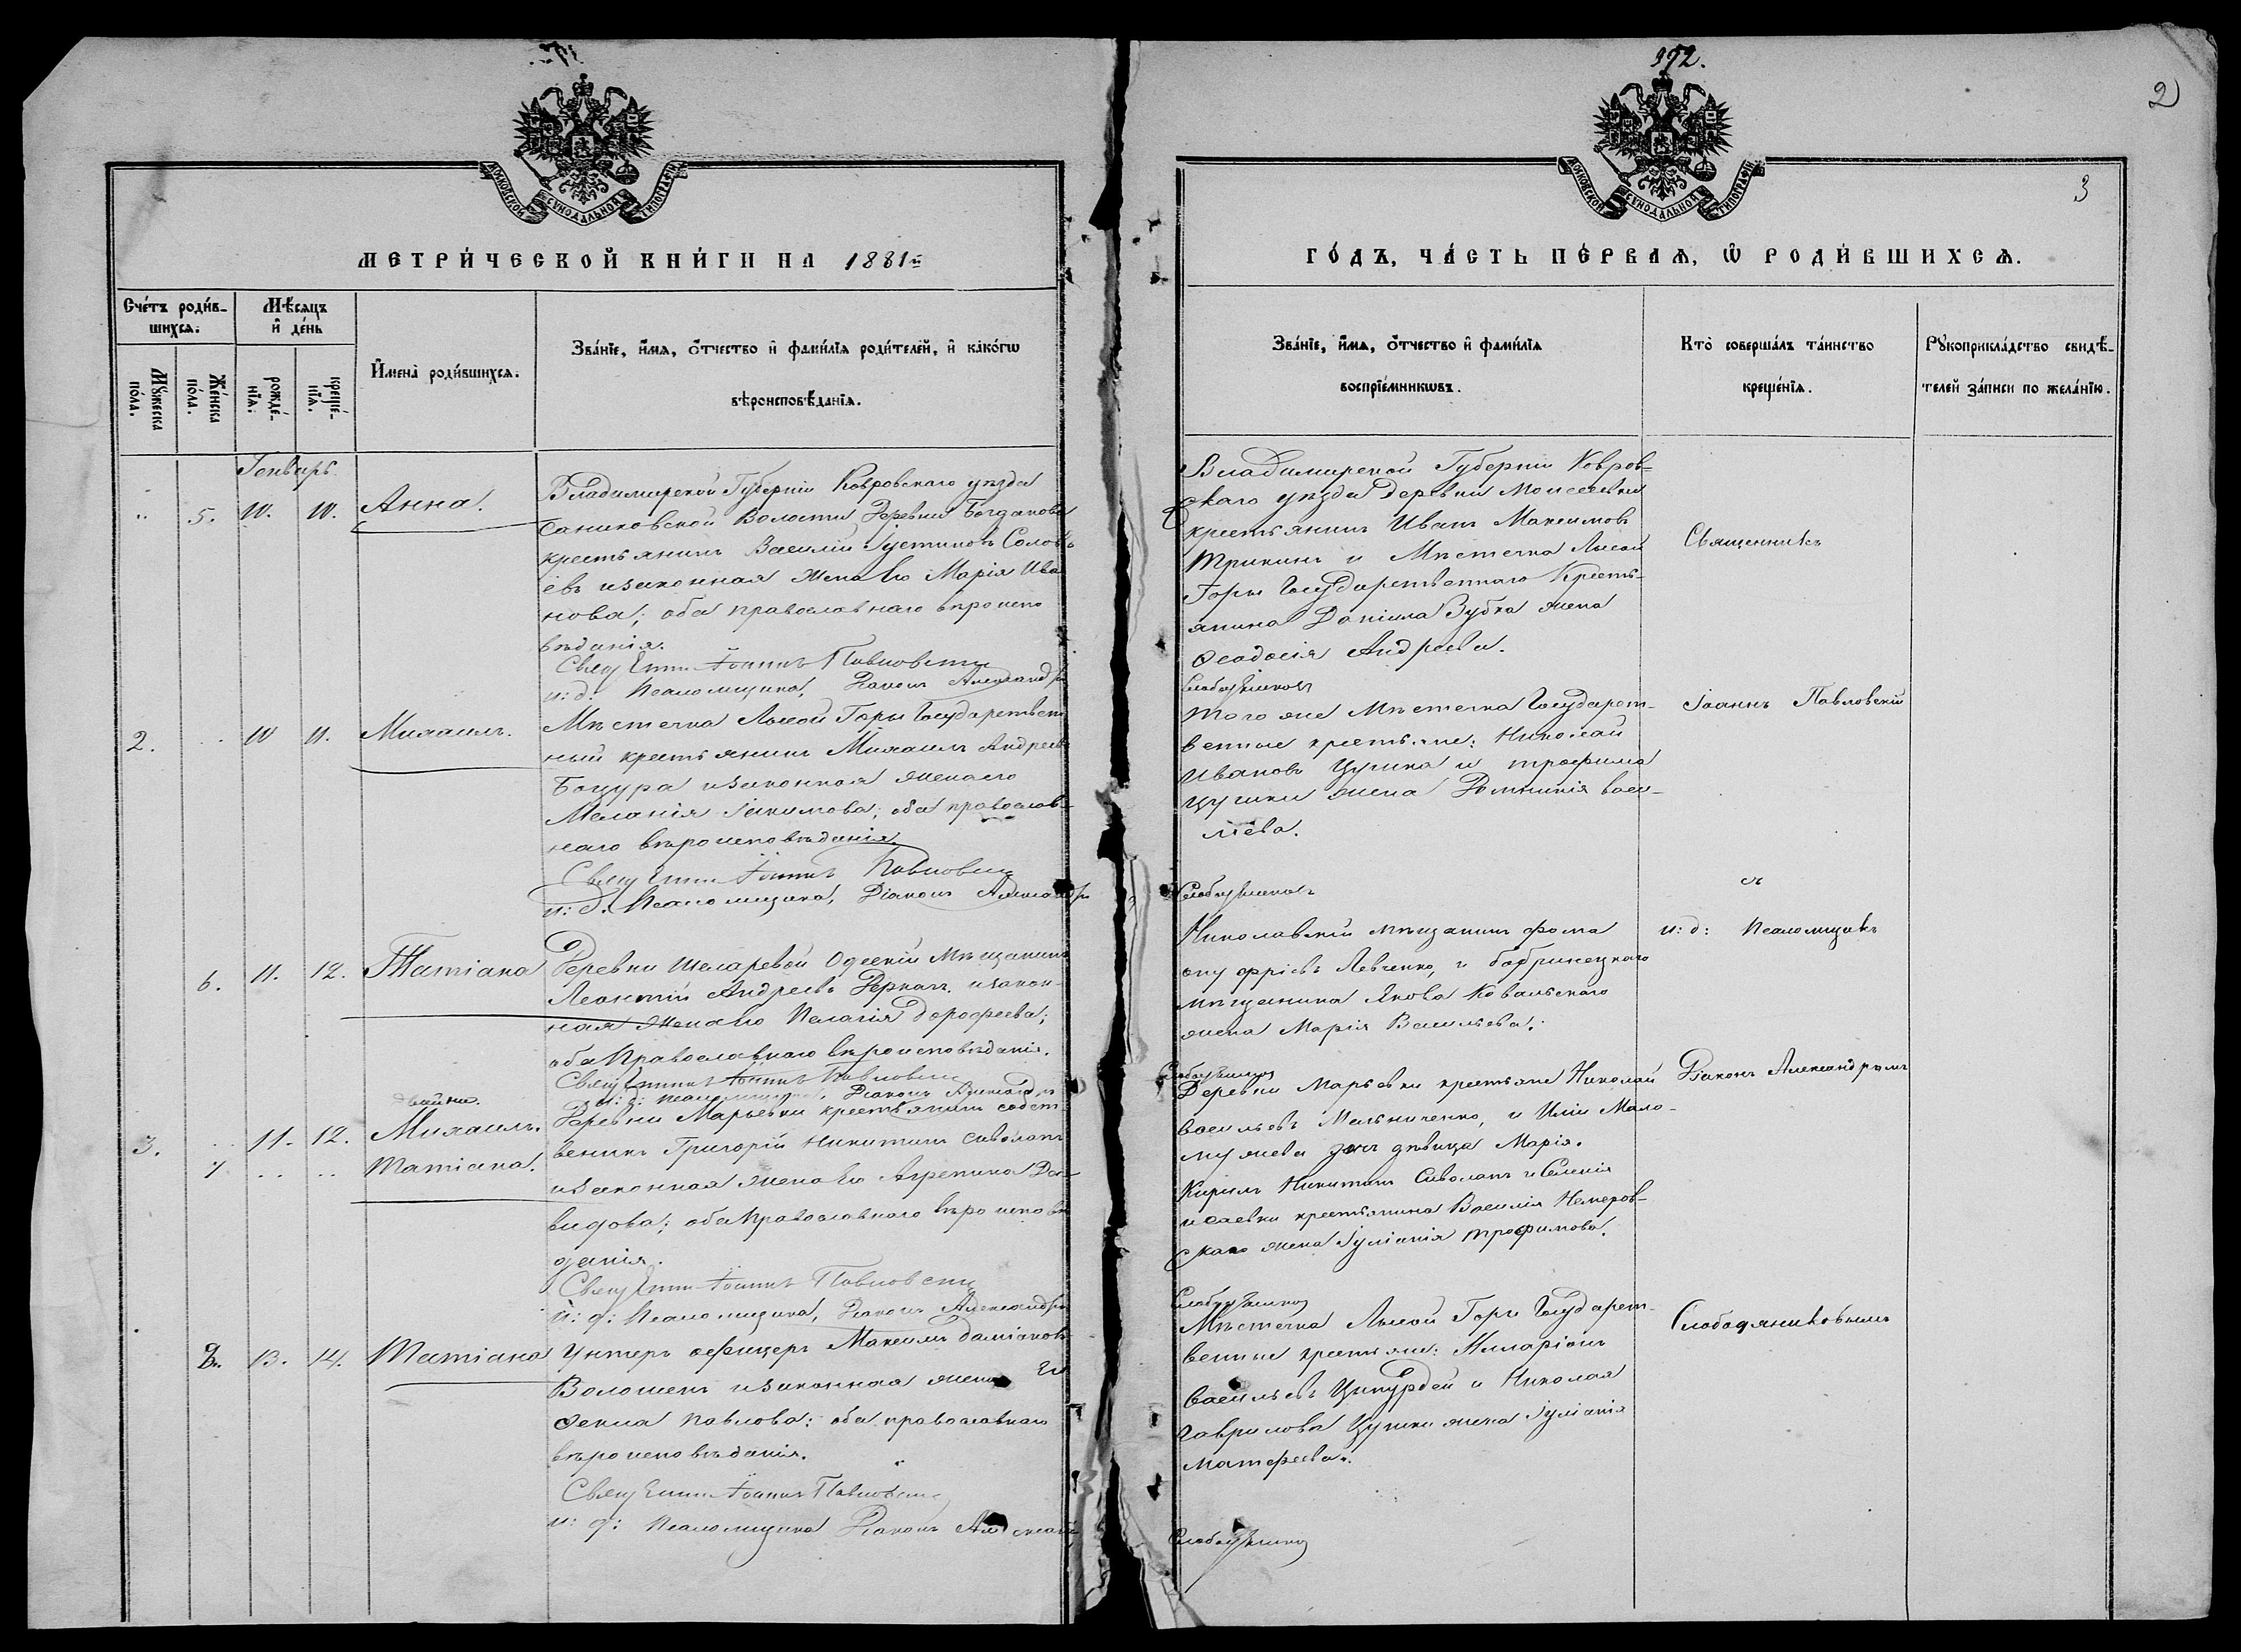 392.
2
3
МОСКОВСКОЙ СѴНОДАЛЬНОЙ ТИПОГРАФІИ
МЕТРИ́ЧЕСКОЙ КНИ́ГИ НА 1881й
Сче́тъ роди́в-
шихсѧ:
Мꙋ́жеска
по́ла.
Же́нска
по́ла.
Мѣ́сѧцъ
и҆ де́нь
рожде́-
нїѧ:
креще́-
нїѧ.
И҆мена̀ роди́вшихсѧ.
Зва́нїе, и҆́мѧ, ѻ҆́тчество и҆ фами́лїѧ роди́телей, и҆ како́гѡ
вѣроисповѣ́данїѧ.
Генварь.
5. 10. 10. Анна.
Владимирской Губерніи Ковровскаго уѣзда
Саниковской Волости Деревни Богданова
крестьянинъ Василій Іустиновъ Соловь
евъ изаконная жена Его Марія Ива
нова; оба православнаго вѣроиспо
вѣданія.
Священникъ Іоаннъ Павловскій
и: д: Псаломщика, Діаконъ Александръ
2. 10 11. Михаилъ.
Мѣстечка Лысой Горы Государствен
ный крестьянинъ Михаилъ Андреевъ
Боцура изаконная женаего
Меланія Іакимова; оба православ-
наго вѣроисповѣданія.
Священникъ Іоаннъ Павловскій
и: д: Псаломщика, Діаконъ Александръ
6. 11. 12. Татіана
Деревни Шеларевой Одескій Мѣщанинъ
Леонтій Андреевъ Деркачъ. изакон-
ная жена Его Пелагія Дорофеева;
оба Православнаго вѣроисповѣданія.
Священникъ Іоаннъ Павловскій
и: д: псаломщика, Діаконъ Александръ
двойни.
3. 11. 12. Михаилъ.
7 Татіана.
Деревни Марьевки крестьянинъ собст-
веникъ Григорій Никитинъ Сиволапъ
изаконная жена Его Агрепина Да-
видова; оба Православнаго вѣроисповѣ
данія.
Священникъ Іоаннъ Павловскій
и: д: Псаломщика, Діаконъ Александръ
8. 13. 14. Татіана
Унтеръ офицеръ Максимъ Даміановъ
Волошенъ изаконная жена Его
Фекла Павлова: оба православнаго
вѣроисповѣданія.
Священникъ Іоаннъ Павловскій
и: д: Псаломщика Діаконъ Александръ
ГО́ДЪ, ЧА́СТЬ ПЕ́РВАѦ, Ѡ҆ РОДИ́ВШИХСѦ.
Зва́нїе, и҆́мѧ, ѻ҆́тчество и҆ фами́лїѧ
воспрїе́мникѡвъ.
Кто̀ соверша́лъ та́инство
креще́нїѧ.
Рꙋкоприкла́дство свидѣ́-
телей за́писи по жела́нїю.
Владимирской Губерніи Ковров-
скаго уѣзда Деревни Моисеевки
крестьянинъ Иванъ Максимовъ
Трикинъ и Мѣстечка Лысой
Горы Государственнаго Кресть-
янина Даніила Зубка жена
Феодосія Андреева.
Слободяниковъ
Того же Мѣстечка Государст-
венные крестьяне: Николай
Ивановъ Цуцика и Трофима
Цуцики жена Домникія Васи-
лева.
Слободяниковъ
Николавскій мѣщанинъ Фома
Онуфріевъ Левченко, и бобринецкаго
мѣщанина Якова Ковальскаго
жена Марія Васильева.
Слободяниковъ
Деревни Марьевки крестьяне Николай
Васильевъ Мельниченко, и Иліи Мало-
мужева дочь дѣвица Марія.
Кирилъ Никитинъ Сиволапъ и Селенія
Исаевки крестьянина Василія Немеров-
скаго жена Іуліанія Трофимова.
Слободяниковъ
Мѣстечка Лысой Горы Государст-
венные крестьяне: Иларіонъ
Васильевъ Цинурдей и Николая
Гаврилова Цуцики жена Іуліанія
Матфеева.
Слободяниковъ
Священникъ
Іоаннъ Павловскій
съ
и: д: Псаломщикъ
Діаконъ Александромъ
Слободяниковымъ